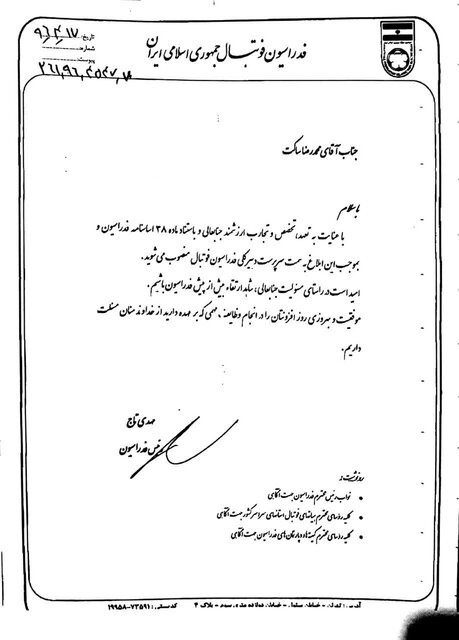 فدراسیون فوتبال جمهوری اسلامی ایران
تاریخ: ۹۶٫۴٫۱۷
شماره:
پیوست:
جناب آقای محمدرضا ساکت
با سلام
با عنایت به تعهد، تخصص و تجارب ارزشمند جنابعالی و باستناد ماده ۳۸ اساسنامه فدراسیون و
بموجب این ابلاغ به سمت سرپرست دبیرکلی فدراسیون فوتبال منصوب می شوید.
امید است در راستای مسئولیت جنابعالی، شاهد ارتقاء بیش از پیش فدراسیون باشیم.
موفقیت و بهروزی روز افزونتان را در انجام وظایف مهمی که بر عهده دارید از خداوند منان مسئلت
داریم.
مهدی تاج
رئیس فدراسیون
رونوشت:
نواب رئیس محترم فدراسیون جهت آگاهی
کلیه روسای محترم هیاتهای فوتبال استانهای سراسر کشور جهت آگاهی
کلیه روسای محترم کمیته ها و دپارتمان های فدراسیون جهت آگاهی
آدرس: تهران - خیابان - خیابان - پلاک ۴ کدپستی: ۷۳۵۹۱-۱۹۹۵۸